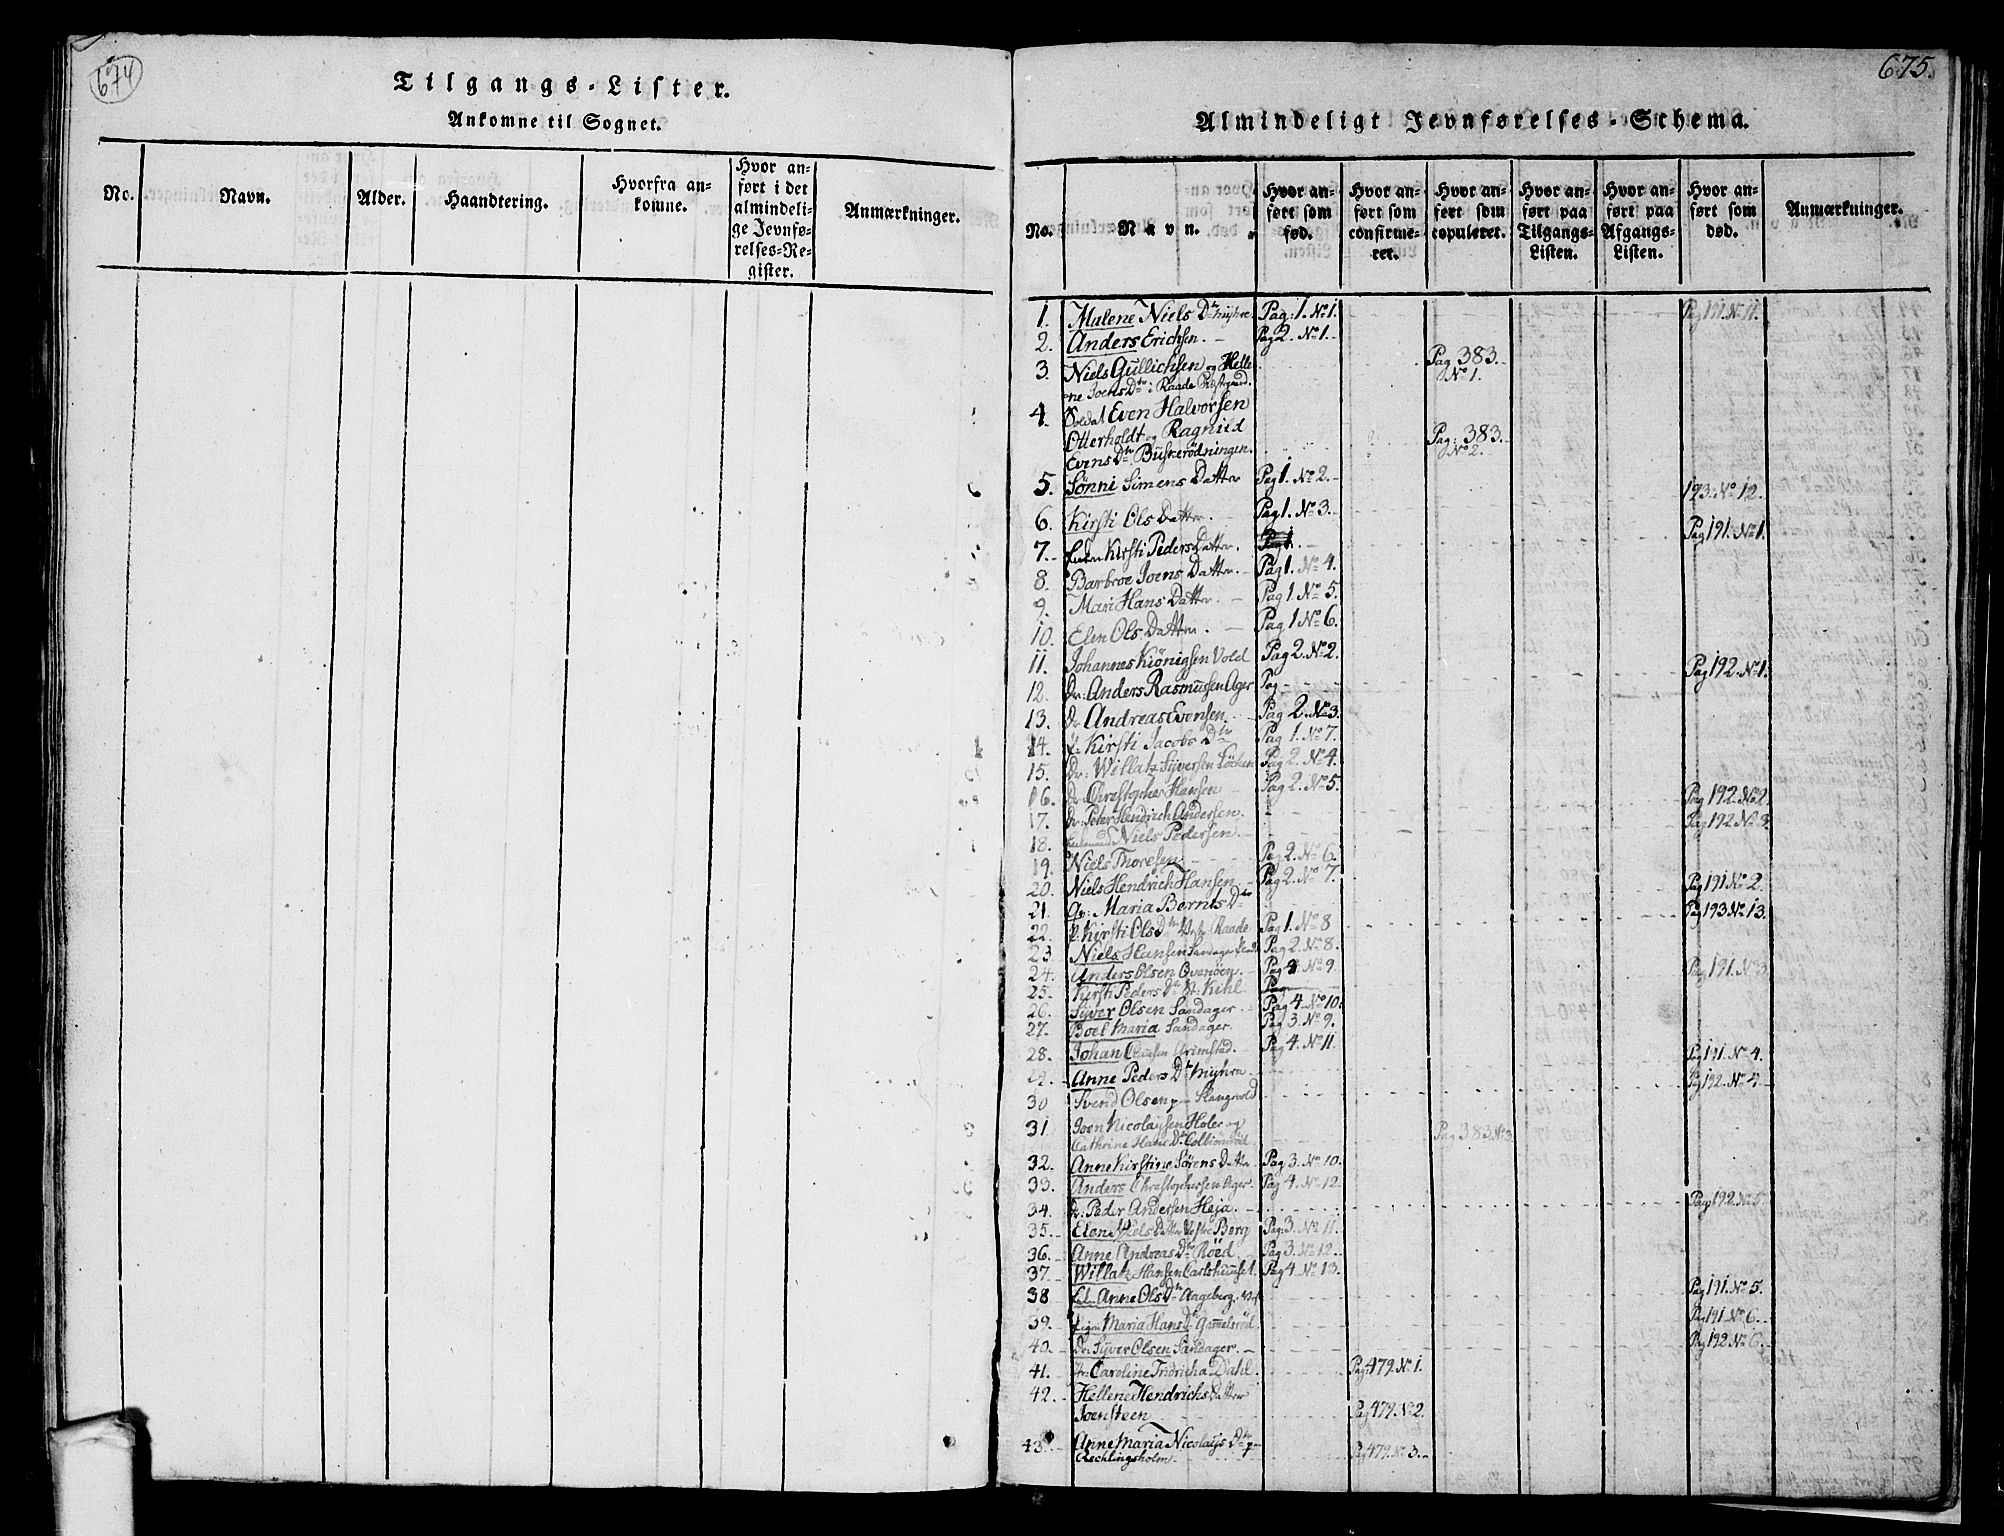 674
Tilgangs-Lister.
Ankomne til Sognet.
No.
Navn.
Alder.
Haandtering.
Hvorfra an-
komne.
Hvor an-
ført i det
almindeli-
ge Jevnfø-
relses-Re-
gister.
Anmærkninger.
675.
Almindeligt Jevnførelses-Schema.
No.
Navn.
Hvor an-
ført som
fød.
Hvor an-
ført som
confirme-
ret.
Hvor an-
ført som
copuleret.
Hvor an-
ført paa
Tilgangs-
Listen.
Hvor an-
ført paa
Afgangs-
Listen.
Hvor an-
ført som
død.
Anmærkninger.
1. Malene Niels Dtr Myhre. Pag: 1. No 1. Pag 191. No 11.
2. Anders Erichsen. Pag 2. No 1.
3. Niels Gullichsen og Helle Pag 383.
ne Joens Dtr i Raade Præstegaard. No 1.
4. Soldat Even Halvorsen
Otterholdt og Ragnild Pag: 383.
Evens Dtr Buskerødningen. No 2.
5. Sønni Simens Datter Pag 1. No 2. 193. No 12.
6. Kirsti Ols Datter. Pag 1. No 3.
7. Kirsti Peders Datter. Pag 1. Pag 191. No 1.
8. Barbroe Joens Datter. Pag 1. No 4.
9. Mari Hans Datter. Pag 1 No 5.
10. Elen Ols Datter. Pag 1 No 6.
11. Johannes Kiönigsen Vold Pag 2. No 2.
12. Dr: Anders Rasmussen Ager Pag Pag 192. No 1.
13. Dr Andreas Evensen. Pag 2. No 3.
14. Kirsti Jacobs Dtr Pag 1. No 7.
15. Dr: Willatz Syversen Pag 2. No 4.
16. Dr: Christopher Hansen Pag 2. No 5.
17. Dr: Peter Hendrich Andersen. Pag 192. No 2
18. Niels Pedersen Pag 192 No 3.
19. Niels Thoresen Pag 2. No 6.
20. Niels Hendrich Hansen Pag 2. No 7.
21. Maria Bernts Dtr Pag 191 No 2.
22. Kirsti Ols Dtr Raade Pag 1. No 8 Pag 193 No 13.
23. Niels Hansen Pag 2. No 8.
24. Anders Olsen Ovenöen. Pag 4 No 9
25. Kirsti Peders Dtr Kihl Pag Pag 191. No 3.
26. Syver Olsen Sandager Pag 4. No 10.
27. Boel Maria Sandager. Pag 3. No 9.
28. Johan Grimstad. Pag 4. No 11.
29. Anne Peders Dtr Myhra. Pag 191. No 4.
30 Svend Olsen Pag 192. No 4.
31 Joen Nicolaysen Holer og
Cathrine Hans Dtr Pag 383. No 3
32. Anne Kirstine Sörens Datter Pag 3. No 10.
33. Anders Christophersen Ager. Pag 4. No 12.
34. Dr: Peder Andersen Heja. Pag 192. No 5.
35. Elen Datter Vestre Berg Pag 3. No 11.
36. Anne Andreas Dtr Röed Pag 3. No 12.
37. Willatz Hansen Carlshuuset. Pag 4. No 13.
38 Anne Ols Dtr Aageberg. Pag 191. No 5.
39. Maria Hans Dtr Gammelsröd. Pag 191 No 6.
40. Dr. Syver Olsen Sandager. Pag 192 No 6.
41. Caroline Fridricha Dahl. Pag 479. No 1.
42. Hellene Hendrichs Datter
Joensteen Pag 479. No 2.
43. Anne Maria Nicolays Dtr p Pag 479. No 3.
Rechlingsholm.